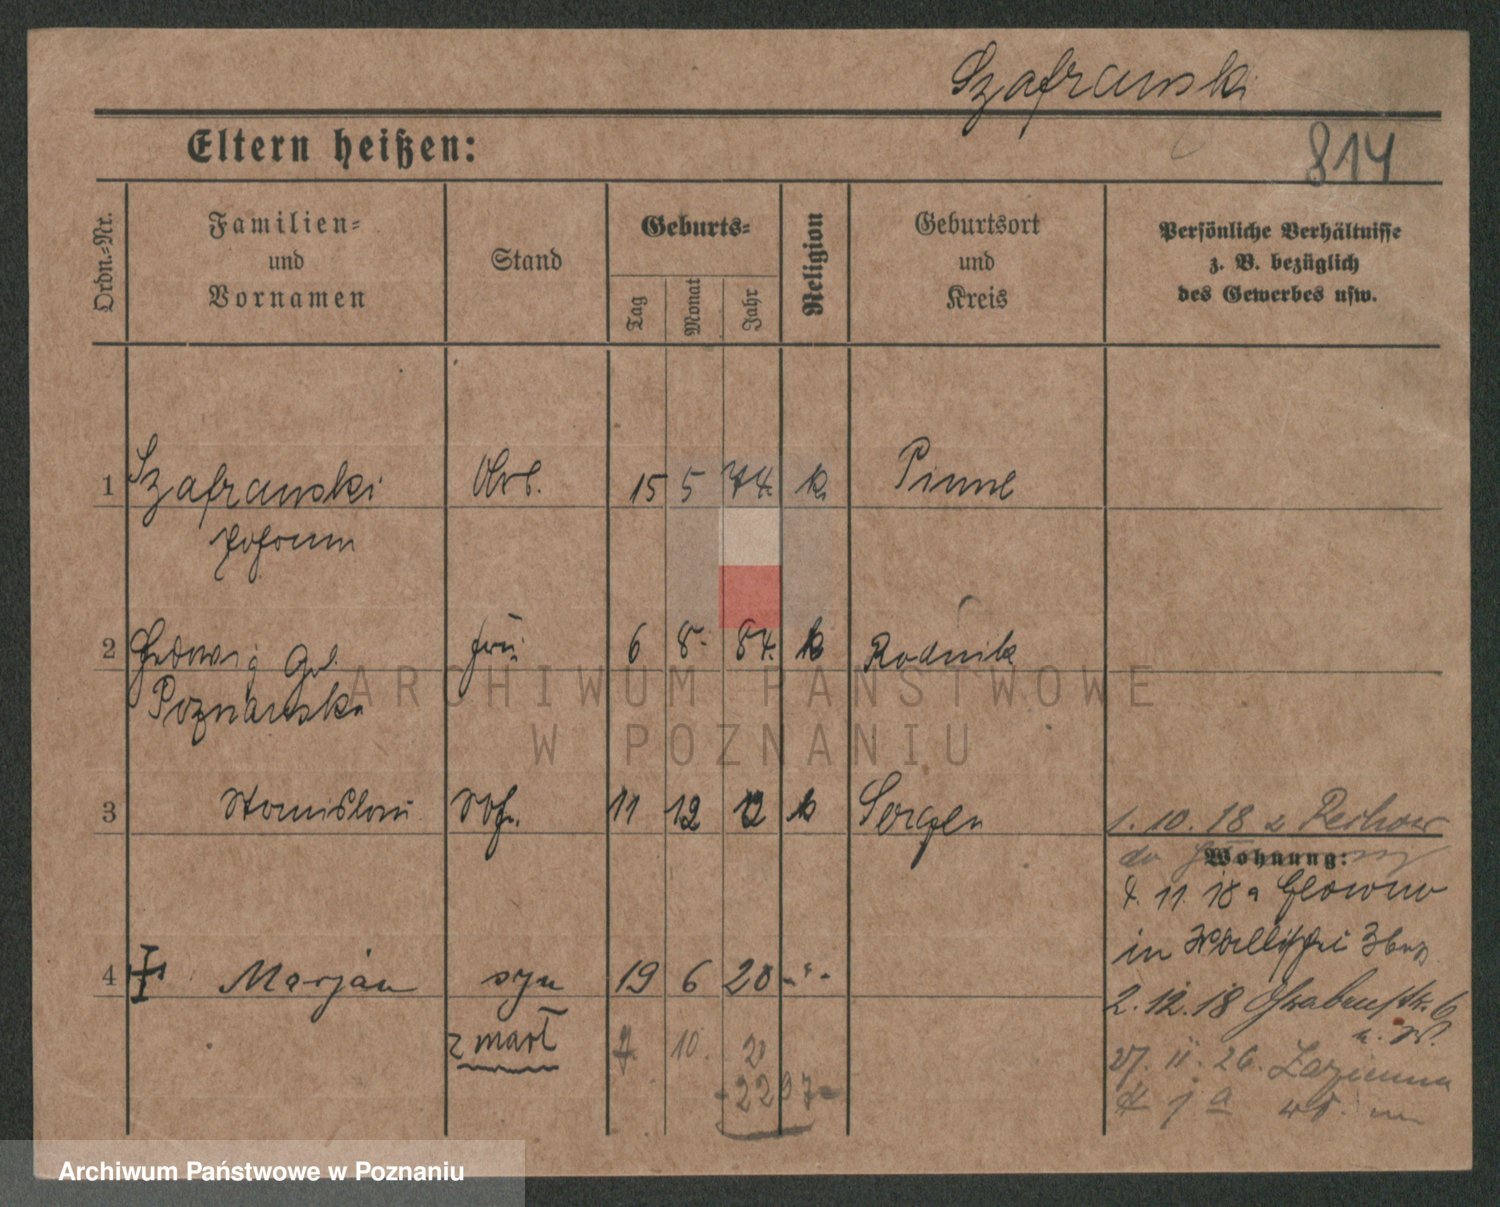 Szafranski
Eltern heißen:
814
Ordn.-Nr.
Familien-
und
Vornamen
Stand
Geburts-
Tag
Monat
Jahr
Religion
Geburtsort
und
Kreis
Persönliche Verhältnisse
z. B. bezüglich
des Gewerbes usw.
1 Szafranski Arb. 15 5 74. k. Pinne
Johann
2 Hedwig geb. frau 6 8. 84. k Rudnik
Poznanska
ARCHIWUM PAŃSTWOWE
W POZNANIU
3 Stanislaus Sohn 11 12 12 k
1. 10. 18
Wohnung:
11. 18 Glowno
in
4 Marjan syn 19 6 20 - " -
2. 12. 18 Grabenstr. 6
zmarł 7. 10. 21
27. 11. 26. Łazienna
- 2297 -
Archiwum Państwowe w Poznaniu